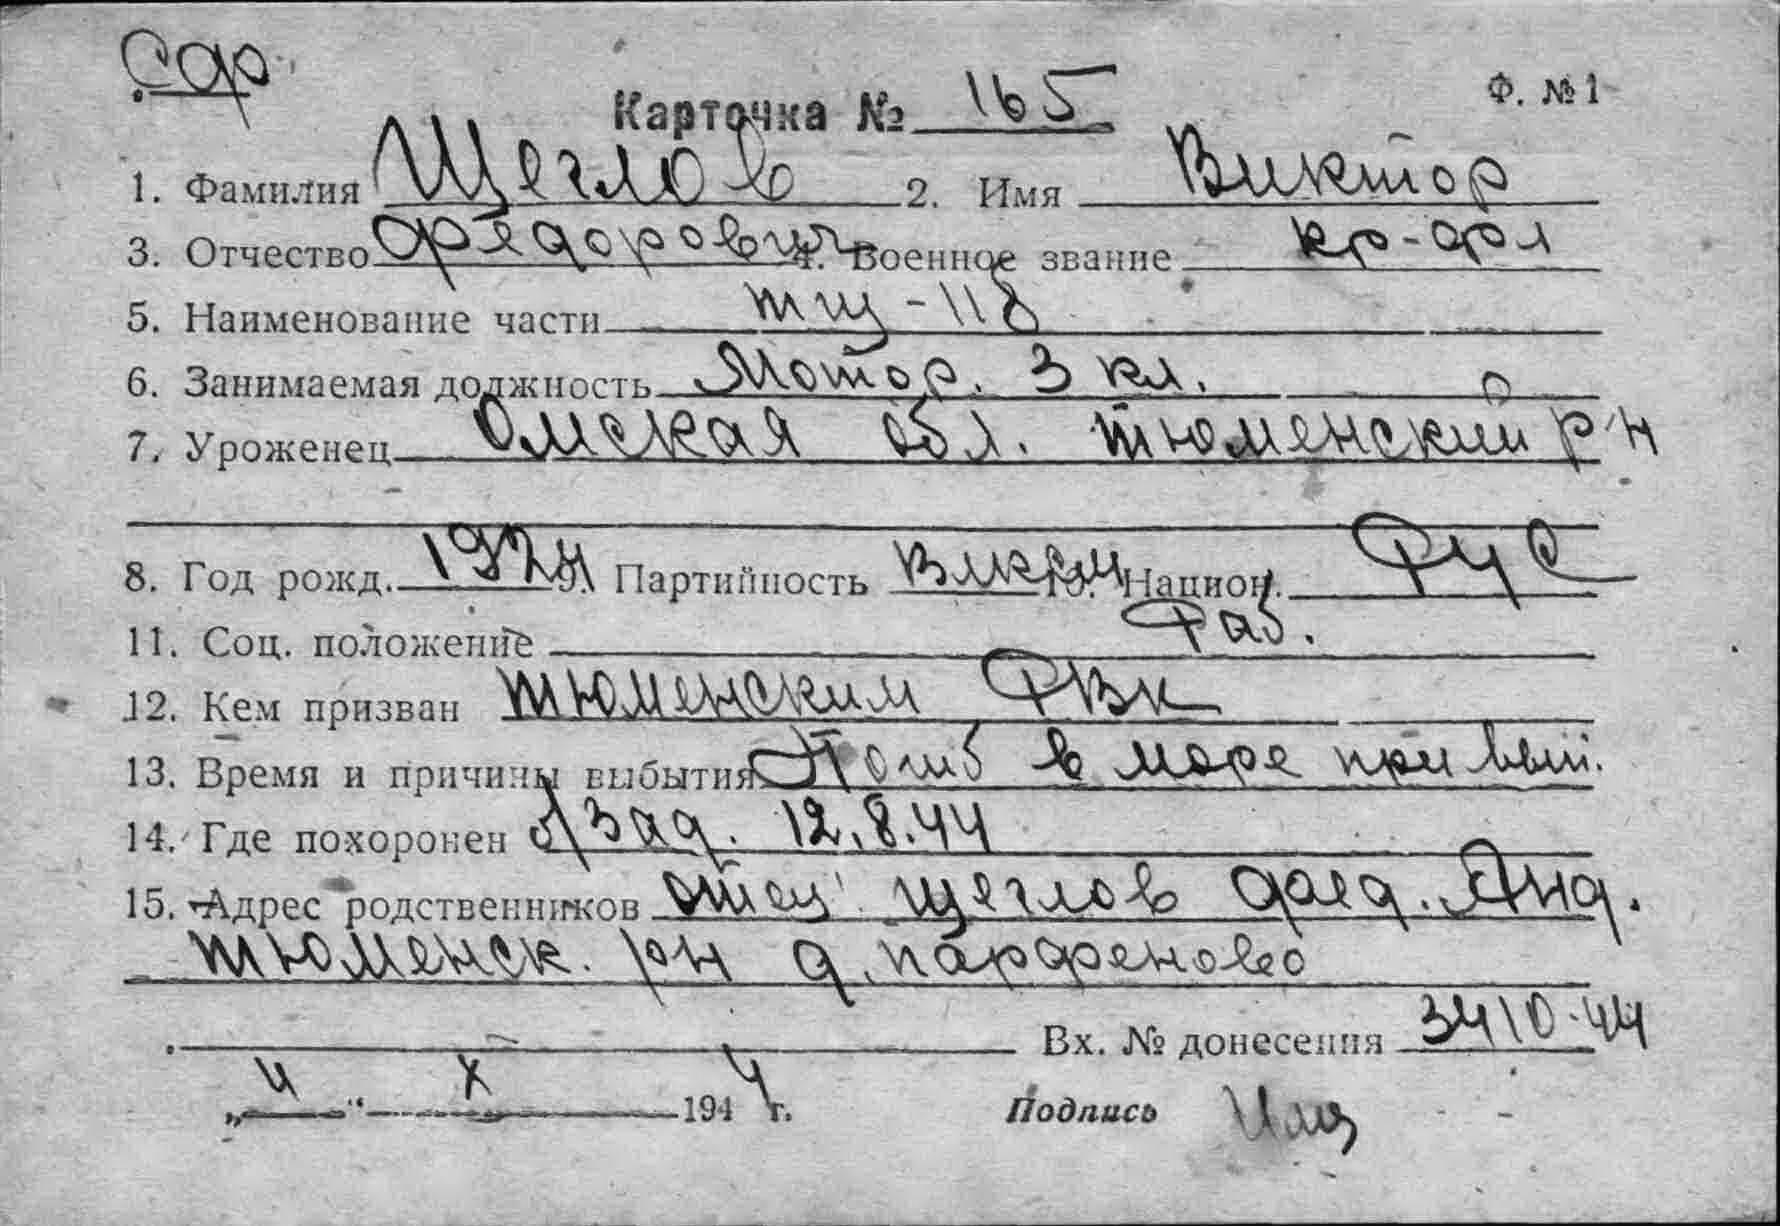 Сф
Карточка № 165 Ф. № 1
1. Фамилия Щеглов 2. Имя Виктор
3. Отчество Федорович 4. Военное звание кр-фл
5. Наименование части тщ-118
6. Занимаемая должность Мотор. 3 кл.
7. Уроженец Омская обл. Тюменский р-н
8. Год рожд. 1924 9. Партийность ВЛКСМ 10. Национ. Рус
11. Соц. положение Раб.
12. Кем призван Тюменским РВК
13. Время и причины выбытия Погиб в море при вып.
14. Где похоронен б/зад. 12.8.44
15. Адрес родственников отец Щеглов Фед. Анд.
Тюменск. рн д. Парфеново
Вх. № донесения 3410-44
„4“ X 1944 г. Подпись